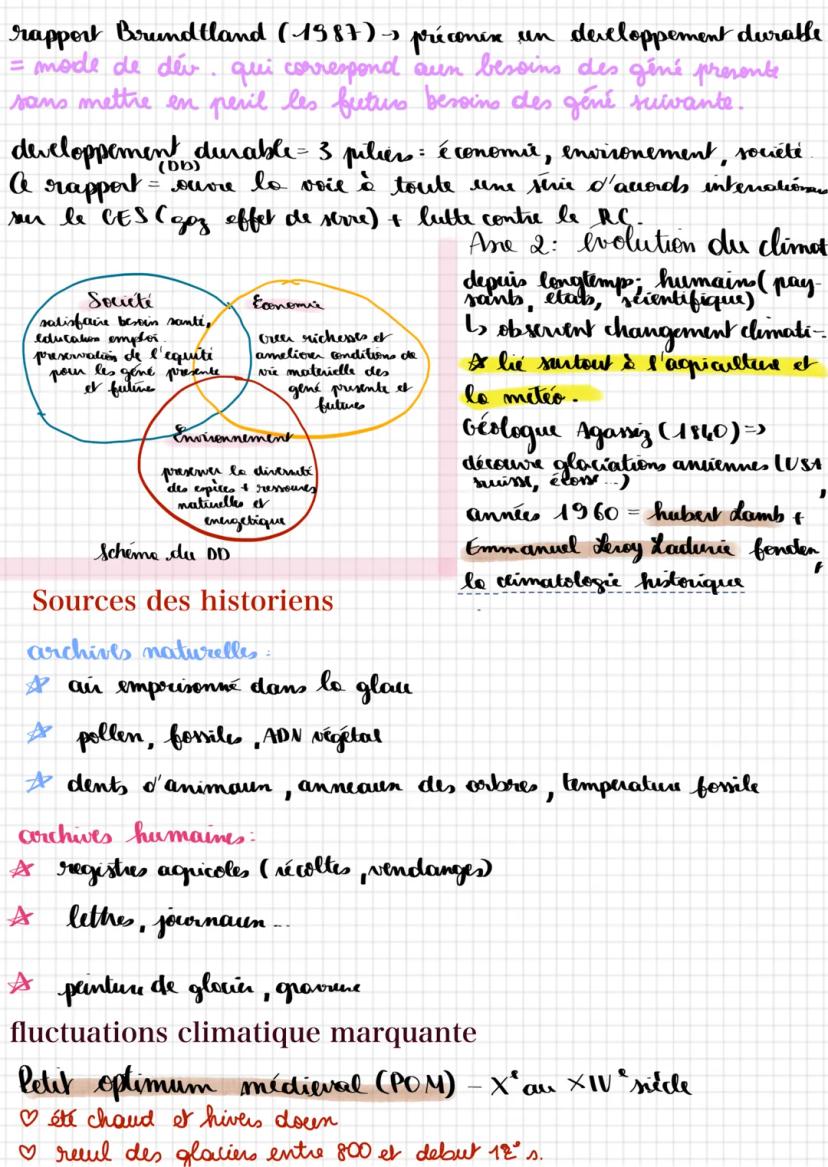 rapport Brundtland (1987) → préconise un developpement durable
= mode de dév. qui correspond aux besoins des géné presente
sans mettre en peril les futurs besoins des géné suivante.
developpement durable = 3 piliers : économie, environement, société.
(DD)
Ce rapport = ouvre la voie à toute une série d'accords internations
sur le GES (gaz effet de serre) + lutte contre le RC.
Société
satisfaire besoin santé,
education emploi.
preservation de l'equité
pour les géné presente
et future
Economie
creer richesses et
ameliorer conditions de
vie materielle des
gené presente et
futures
Environnement
preserver la diversité
des espèces + ressources
naturelles et
energetique
Schéma du DD
Axe 2: évolution du climat
depuis longtemp; humains (pay-
sants, etats, scientifique)
↳ observent changement climati-
★ lié surtout à l'agriculture et
la météo.
Géologue Agassiz (1840) =>
découvre glaciations anciennes (USA,
suisse, écosse...)
années 1960 = hubert Lamb +
Emmanuel Leroy Ladurie fonden,
la climatologie historique
Sources des historiens
archives naturelles :
☆ air emprisonné dans la glace
☆ pollen, fossiles, ADN végétal
☆ dents d'animaux, anneaux des arbres, temperature fossile
archives humaines :
☆ registres agricoles (récoltes, vendanges)
☆ lettres, journaux...
☆ peinture de glacier, gravure
fluctuations climatique marquante
Petit optimum médieval (POM) - Xᵉ au XIVᵉ siècle
♡ été chaud et hivers doux
♡ recul des glaciers entre 800 et debut 12ᵉ s.